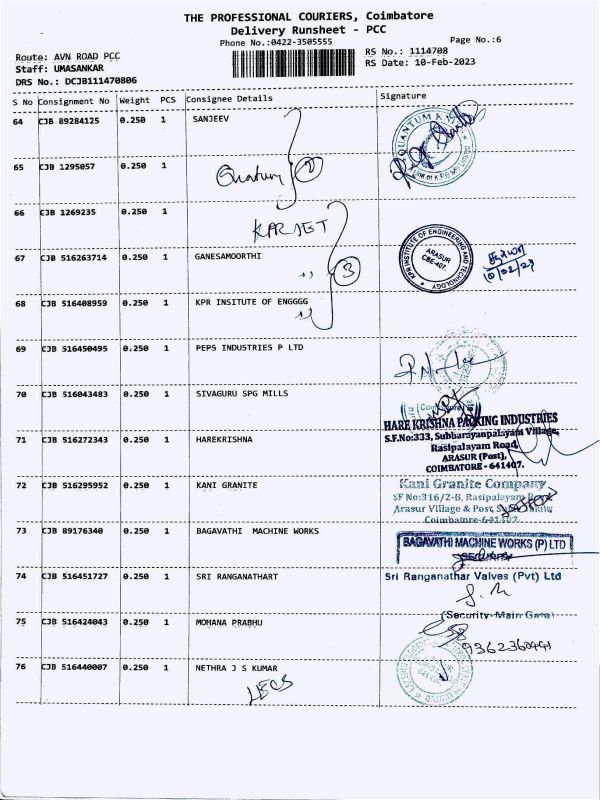 THE PROFESSIONAL COURIERS, Coimbatore
Delivery Runsheet - PCC
Phone No.:0422-3505555 Page No.:6
Route: AVN ROAD PCC RS No.: 1114708
Staff: UMASANKAR RS Date: 10-Feb-2023
DRS No.: DCJB111470806
S No Consignment No Weight PCS Consignee Details Signature
64 CJB 89284125 0.250 1 SANJEEV
QUANTUM
65 CJB 1295057 0.250 1
Quantum 2
66 CJB 1269235 0.250 1
KPR
67 CJB 516263714 0.250 1 GANESAMOORTHI
KPR INSTITUTE OF ENGINEERING AND TECHNOLOGY
ARASUR
CBE-407.
10/02/23
3
68 CJB 516408959 0.250 1 KPR INSITUTE OF ENGGGG
69 CJB 516450495 0.250 1 PEPS INDUSTRIES P LTD
70 CJB 516043483 0.250 1 SIVAGURU SPG MILLS
HARE KRISHNA PACKING INDUSTRIES
S.F.No:333, Subbarayanpalayam Village,
71 CJB 516272343 0.250 1 HAREKRISHNA
Rasipalayam Road,
ARASUR (Post),
COIMBATORE - 641407.
72 CJB 516295952 0.250 1 KANI GRANITE
Kani Granite Company
SF No:316/2-B, Rasipalayam Road
Arasur Village & Post,
Coimbatore-641407.
73 CJB 89176340 0.250 1 BAGAVATHI MACHINE WORKS
BAGAVATHI MACHINE WORKS (P) LTD
SECURITY
74 CJB 516451727 0.250 1 SRI RANGANATHART
Sri Ranganathar Valves (Pvt) Ltd
(Security-Main Gate)
75 CJB 516424043 0.250 1 MOHANA PRABHU
76 CJB 516440007 0.250 1 NETHRA J S KUMAR
LECS